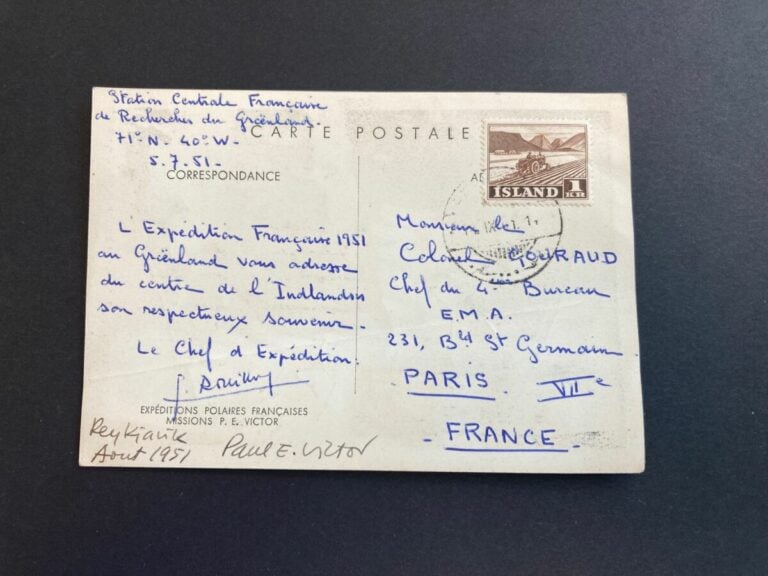 Station Centrale Française
de Recherches du Groënland.
71° N - 40° W -
5.7.51 -
CARTE POSTALE
CORRESPONDANCE
L'Expédition Française 1951
au Groënland vous adresse
du centre de l'Indlandsis
son respectueux souvenir.
Le Chef d'Expédition:
EXPÉDITIONS POLAIRES FRANÇAISES
MISSIONS P. E. VICTOR
Reykjavik
Aout 1951
Paul E. Victor
ISLAND 1
KR
Monsieur le
Colonel TOURAUD
Chef du 4e Bureau
E.M.A.
231, Bld St Germain
PARIS VIIe
- FRANCE -